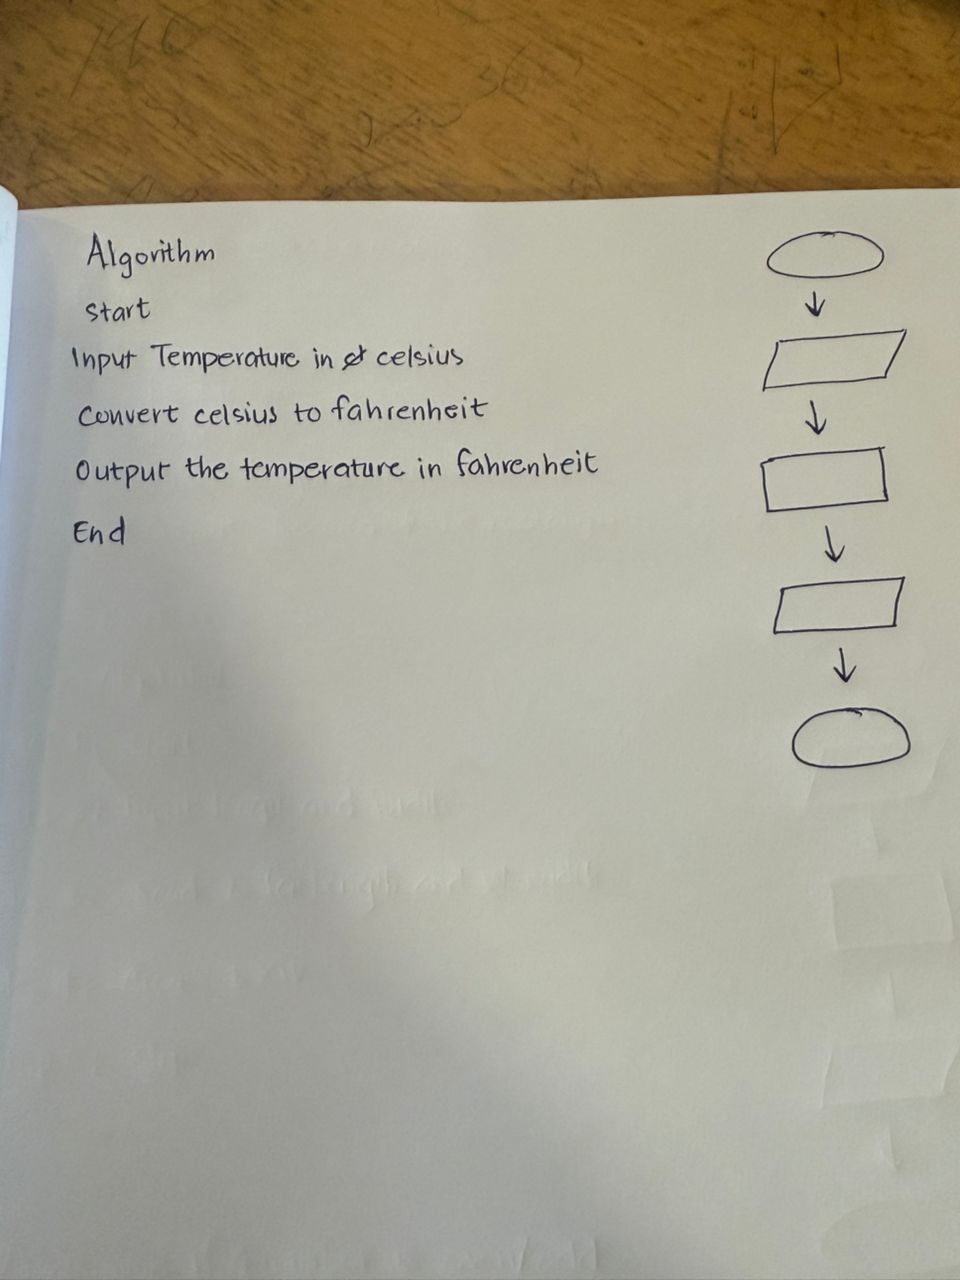 Algorithm
Start
Input Temperature in celsius
Convert celsius to fahrenheit
Output the temperature in fahrenheit
End